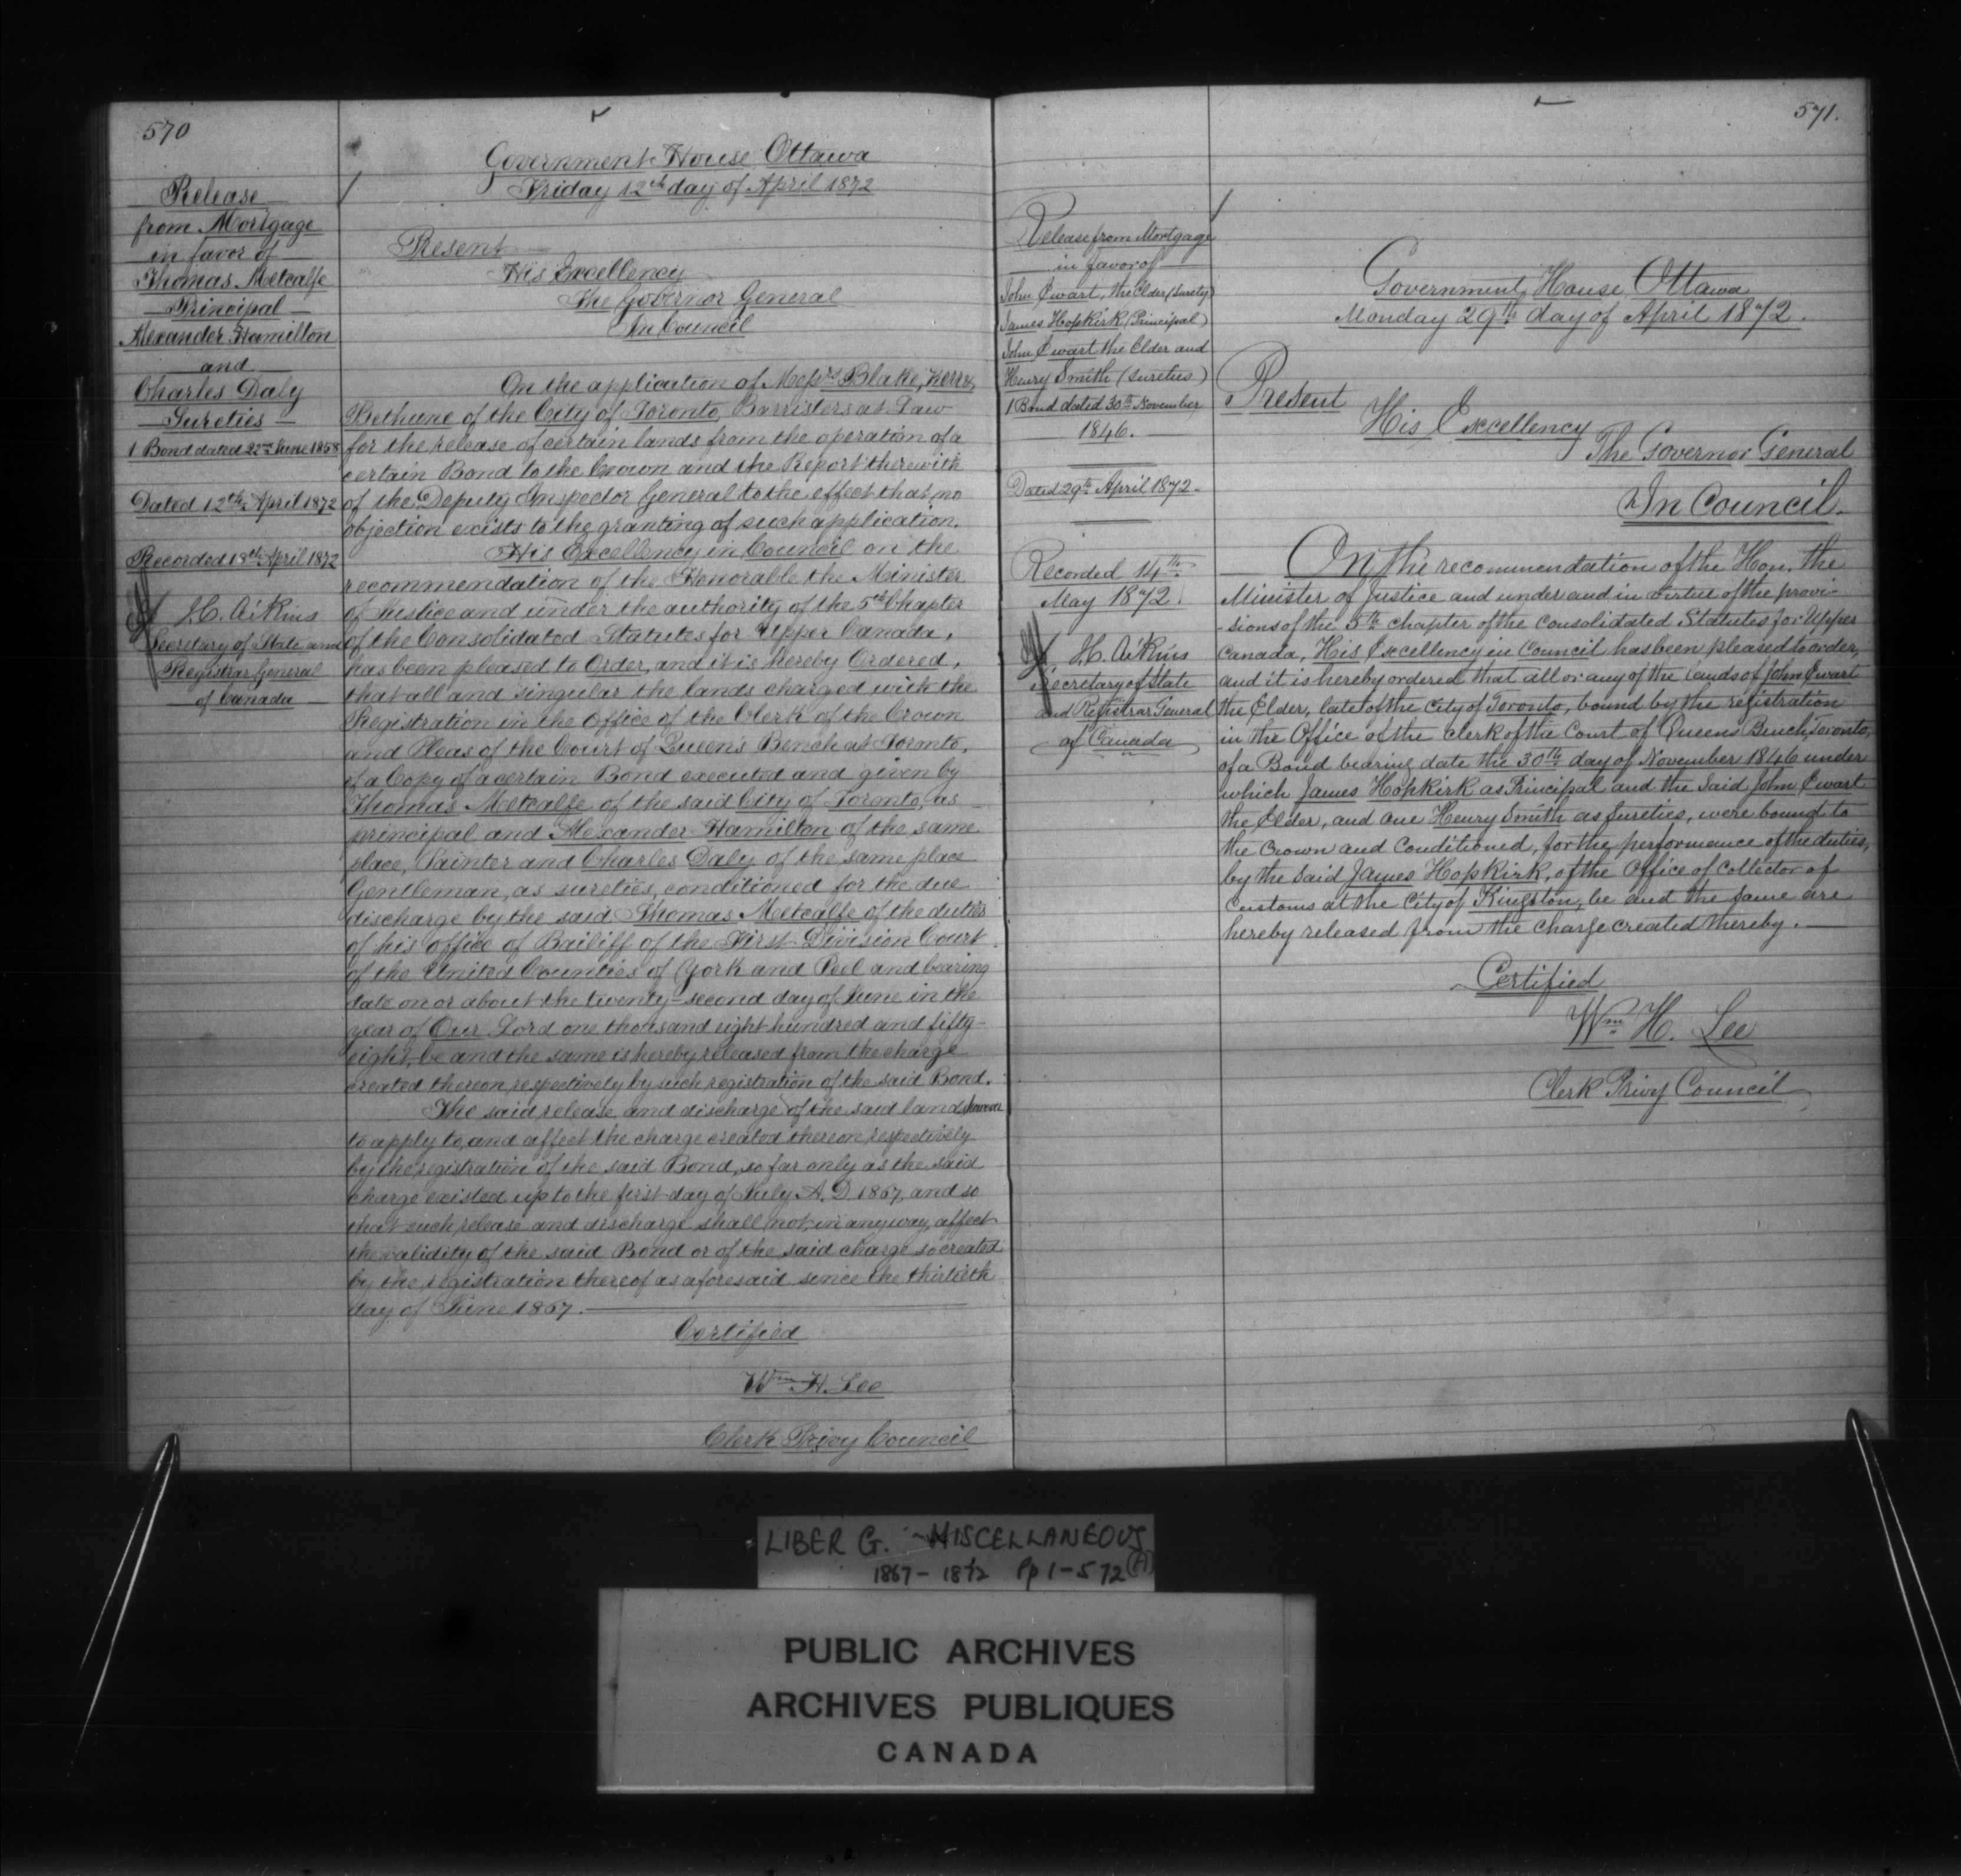 570
Release
from Mortgage
in favor of
Thomas Metcalfe
Principal
Alexander Hamilton
and
Charles Daly
Sureties
1 Bond dated 22nd June 1858
Dated 12th April 1872
Recorded 18th April 1872
J.C. Aikins
Secretary of State and
Registrar General
of Canada
Government House Ottawa
Friday 12th day of April 1872
Present
His Excellency
The Governor General
In Council
On the application of Messrs Blake, Kerr &
Bethune of the City of Toronto, Barristers at Law
for the release of certain lands from the operation of a
certain Bond to the Crown and the Report therewith
of the Deputy Inspector General to the effect that no
objection exists to the granting of such application.
His Excellency in Council on the
recommendation of the Honorable the Minister
of Justice and under the authority of the 5th Chapter
of the Consolidated Statutes for Upper Canada,
has been pleased to Order, and it is hereby Ordered,
that all and singular the lands charged with the
Registration in the Office of the Clerk of the Crown
and Pleas of the Court of Queen's Bench at Toronto,
of a Copy of a certain Bond executed and given by
Thomas Metcalfe of the said City of Toronto, as
principal and Alexander Hamilton of the same
place, Painter and Charles Daly of the same place
Gentleman, as sureties, conditioned for the due
discharge by the said Thomas Metcalfe of the duties
of his office of Bailiff of the First Division Court
of the United Counties of York and Peel and bearing
date on or about the twenty-second day of June in the
year of Our Lord one thousand eight hundred and fifty-
eight, be and the same is hereby released from the charge
created thereon, respectively by such registration of the said Bond.
The said release and discharge of the said lands however
to apply to, and affect the charge created thereon, respectively
by the registration of the said Bond, so far only as the said
charge existed up to the first day of July A.D. 1867, and so
that such release and discharge shall not in anyway, affect
the validity of the said Bond or of the said charge so created
by the registration thereof as aforesaid since the thirtieth
day of June 1867.
Certified
Wm H. Lee
Clerk Privy Council
571.
Release from Mortgage
in favor of
John Ewart, the Elder (Surety)
James Hopkirk (Principal)
John Ewart the Elder and
Henry Smith (Sureties)
1 Bond dated 30th November
1846.
Dated 29th April 1872.
Recorded 14th
May 1872.
J.C. Aikins
Secretary of State
and Registrar General
of Canada
Government House Ottawa
Monday 29th day of April 1872.
Present
His Excellency
The Governor General
In Council.
On the recommendation of the Hon. the
Minister of Justice and under and in virtue of the provi-
-sions of the 5th chapter of the Consolidated Statutes for Upper
Canada, His Excellency in Council has been pleased to order,
and it is hereby ordered that all or any of the lands of John Ewart
the Elder, late of the City of Toronto, bound by the registration
in the Office of the Clerk of the Court of Queens Bench, Toronto,
of a Bond bearing date the 30th day of November 1846 under
which James Hopkirk as Principal and the said John Ewart
the Elder, and one Henry Smith as Sureties, were bound to
the Crown and Conditioned, for the performance of the duties,
by the said James Hopkirk, of the Office of Collector of
Customs at the City of Kingston, be and the same are
hereby released from the charge created thereby.
Certified
Wm H. Lee
Clerk Privy Council
LIBER G. - MISCELLANEOUS
1867-1872 Pp 1-572 (A)
PUBLIC ARCHIVES
ARCHIVES PUBLIQUES
CANADA